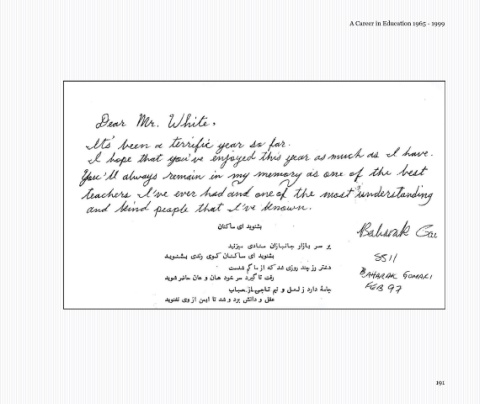 A Career in Education 1965 - 1999
Dear Mr. White,
It's been a terrific year so far.
I hope that you've enjoyed this year as much as I have.
You'll always remain in my memory as one of the best
teachers I've ever had and one of the most understanding
and kind people that I've known.
بشنوید ای ساکنان
بر سر بازار جانبازان منادی میزنند
بشنوید ای ساکنان کوی رندی بشنوید
دختر رز چند روزی شد که از ما گم شدست
رفت تا گیرد سر خود هان و هان حاضر شوید
جامهٔ دارد ز لعل و نیم تاجی از حباب
عقل و دانش برد و شد تا ایمن از وی نغنوید
Baharak
SS11
BAHARAK
FEB 97
191